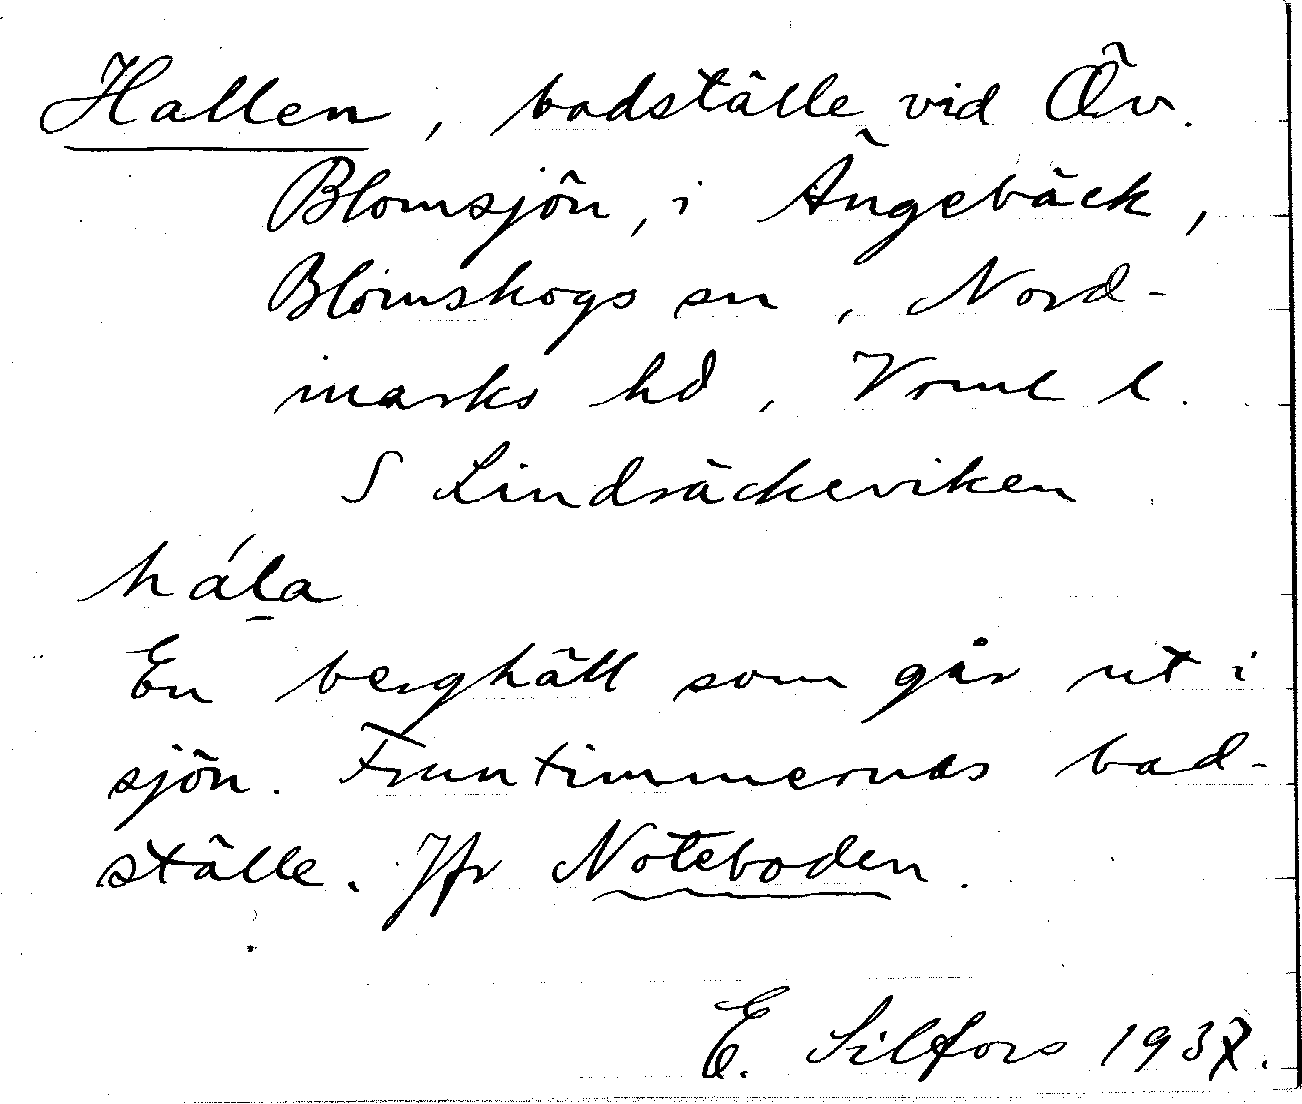 Hallen, badställe vid Öv.
Blomsjön, i Ängebäck,
Blomskogs sn, Nord-
marks hd, Vrml l.
S Lindräckeviken
hála
En berghäll som går ut i
sjön. Fruntimmernas bad-
ställe. Jfr Noteboden.
E. Silfors 1937.